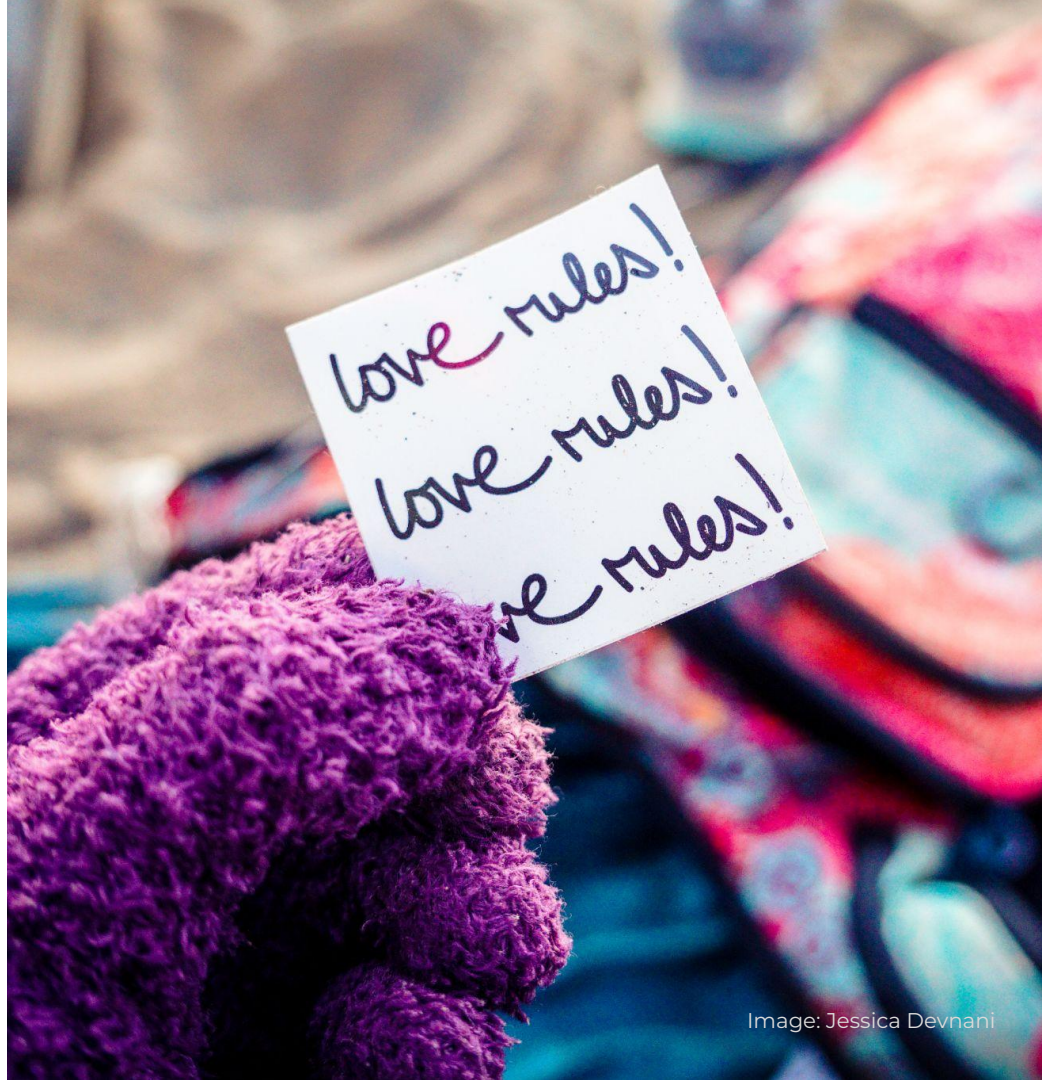 love rules!
love rules!
ve rules!
Image: Jessica Devnani